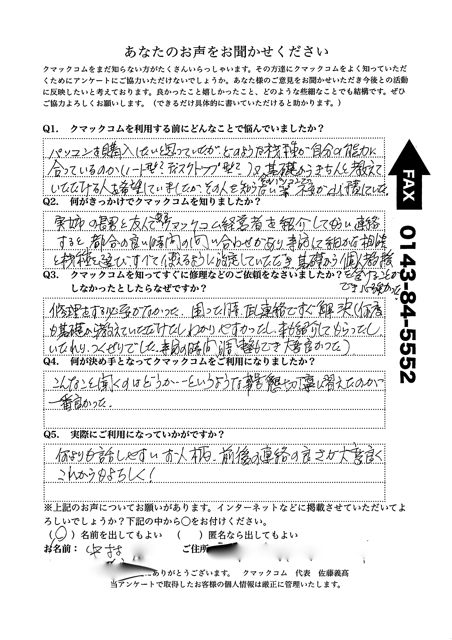 あなたのお声をお聞かせください
クマックコムをまだ知らない方がたくさんいらっしゃいます。その方達にクマックコムをよく知っていただ
くためにアンケートにご協力いただけないでしょうか。あなた様のご意見をお聞かせいただき今後との活動
に反映したいと考えております。良かったこと嬉しかったこと、どのような些細なことでも結構です。ぜひ
ご協力よろしくお願いします。（できるだけ具体的に書いていただけると助かります。）
Q1. クマックコムを利用する前にどんなことで悩んでいましたか？
パソコンを購入したいと思っていたが、どのような機種が自分の能力に
合っているのか（ノート型？デスクトップ型？）又、基礎からきちんと教えて
いただける人を希望していましたが、その人を知らない
Q2. 何がきっかけでクマックコムを知りましたか？
実姉の長男と友人で クマックコム経営者を紹介してもらい連絡
すると都合の良い時間の問い合わせがあり、事前に細かな相談
と機種を選び、すべて使えるように設定していただき、基礎から個人教授
を受けることが
Q3. クマックコムを知ってすぐに修理などのご依頼をなさいましたか？
しなかったとしたらなぜですか？
修理をする必要がなかった。困った時、即連絡ですぐ解決（何度
も基礎から教えていただけたし、わかりやすかったし、
Q4. 何が決め手となってクマックコムをご利用になりましたか？
こんなことを聞くのはどうか…というような事態も丁寧に習えたのが
一番良かった。
Q5. 実際にご利用になっていかがですか？
何よりも話しやすいお人柄、前後の連絡の良さが大変良く
これからもよろしく！
※上記のお声についてお願いがあります。インターネットなどに掲載させていただいてよ
ろしいでしょうか？下記の中から○をお付けください。
（○）名前を出してもよい （ ）匿名なら出してもよい
お名前： ご住所
ありがとうございます。 クマックコム 代表 佐藤義髙
当アンケートで取得したお客様の個人情報は厳正に管理いたします。
FAX 0143-84-5552